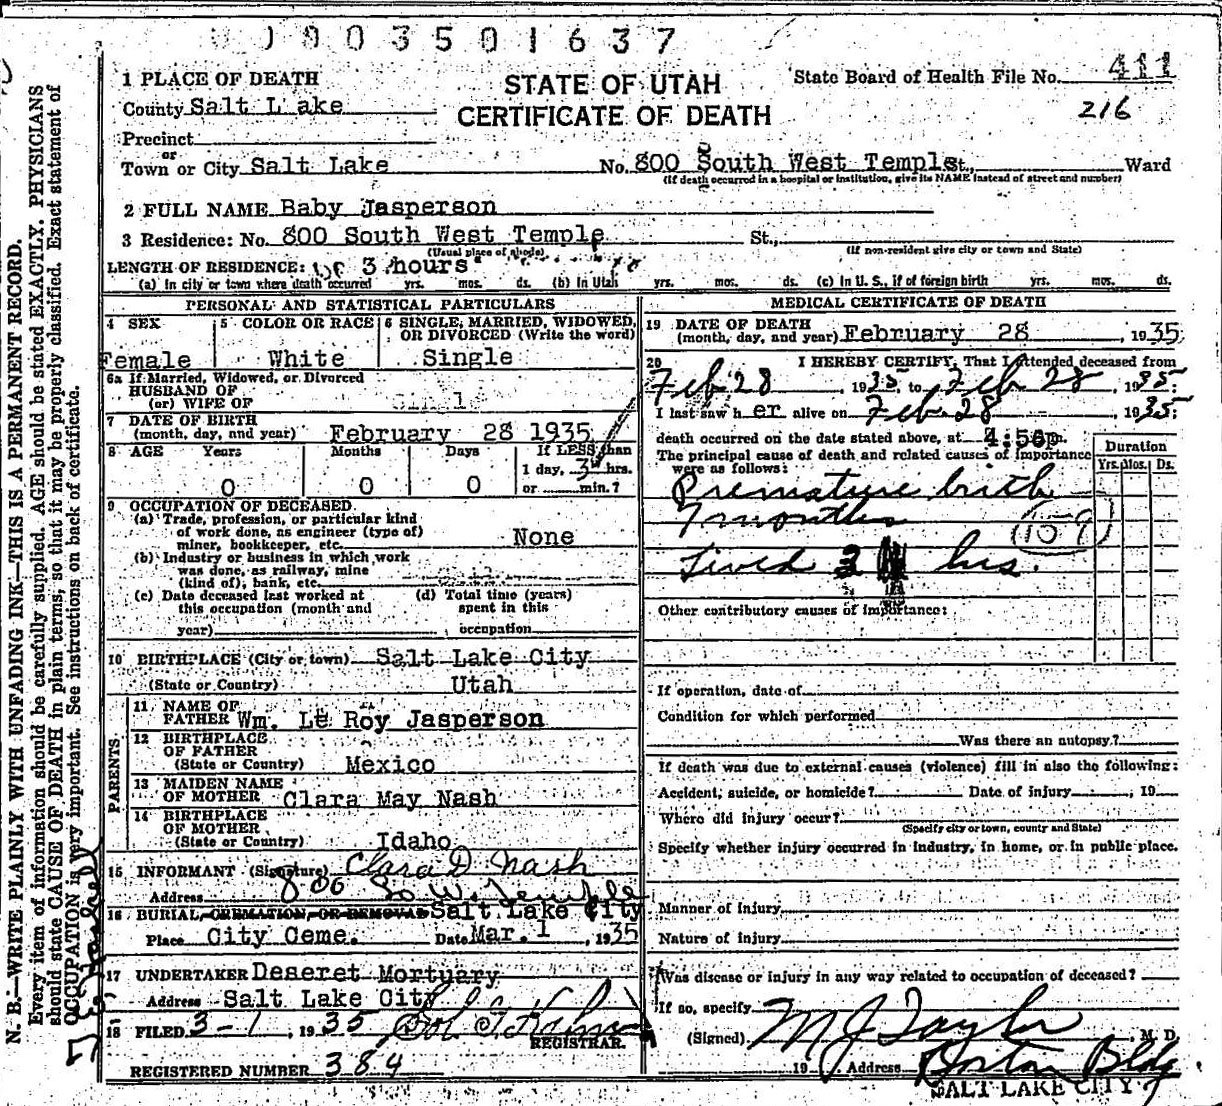 003501637
1 PLACE OF DEATH
STATE OF UTAH
CERTIFICATE OF DEATH
State Board of Health File No. 411
216
County Salt Lake
Precinct
or
Town or City Salt Lake No. 800 South West Temple St., Ward
(If death occurred in a hospital or institution, give its NAME instead of street and number)
2 FULL NAME Baby Jasperson
3 Residence: No. 800 South West Temple St.,
(Usual place of abode) (If non-resident give city or town and State)
LENGTH OF RESIDENCE: 3 hours
(a) In city or town where death occurred yrs. mos. ds. (b) In Utah yrs. mos. ds. (c) In U. S., if of foreign birth yrs. mos. ds.
PERSONAL AND STATISTICAL PARTICULARS
4 SEX
Female
5 COLOR OR RACE
White
6 SINGLE, MARRIED, WIDOWED, OR DIVORCED (Write the word)
Single
6a If Married, Widowed, or Divorced
HUSBAND OF
(or) WIFE OF
7 DATE OF BIRTH
(month, day, and year) February 28 1935
8 AGE Years Months Days If LESS than
1 day, 3 hrs.
0 0 0 or min.?
9 OCCUPATION OF DECEASED
(a) Trade, profession, or particular kind
of work done, as engineer (type of)
miner, bookkeeper, etc. None
(b) Industry or business in which work
was done, as railway, mine
(kind of), bank, etc.
(c) Date deceased last worked at
this occupation (month and
year)
(d) Total time (years)
spent in this
occupation
10 BIRTHPLACE (City or town) Salt Lake City
(State or Country) Utah
PARENTS
11 NAME OF
FATHER Wm. Le Roy Jasperson
12 BIRTHPLACE
OF FATHER
(State or Country) Mexico
13 MAIDEN NAME
OF MOTHER Clara May Nash
14 BIRTHPLACE
OF MOTHER
(State or Country) Idaho
15 INFORMANT (Signature) Clara D Nash
Address 800 So W. Temple
16 BURIAL, CREMATION, OR REMOVAL Salt Lake City
Place City Ceme. Date Mar. 1, 1935
17 UNDERTAKER Deseret Mortuary
Address Salt Lake City
18 FILED 3-1, 1935
REGISTRAR.
REGISTERED NUMBER 384
MEDICAL CERTIFICATE OF DEATH
19 DATE OF DEATH
(month, day, and year) February 28 1935
20 I HEREBY CERTIFY, That I attended deceased from
Feb 28, 1935, to Feb 28, 1935:
I last saw h er alive on Feb 28 1935:
death occurred on the date stated above, at 4:50p m.
The principal cause of death and related causes of importance
were as follows:
Duration
Yrs. Mos. Ds.
Premature birth
7 months
159
Lived 3 hrs.
Other contributory causes of importance:
If operation, date of
Condition for which performed
Was there an autopsy?
If death was due to external causes (violence) fill in also the following:
Accident, suicide, or homicide? Date of injury, 19
Where did injury occur?
(Specify city or town, county and State)
Specify whether injury occurred in industry, in home, or in public place.
Manner of injury
Nature of injury
Was disease or injury in any way related to occupation of deceased?
If so, specify
(Signed) M J Taylor, M. D.
19 Address Boston Bldg
SALT LAKE CITY
N. B.—WRITE PLAINLY WITH UNFADING INK—THIS IS A PERMANENT RECORD.
Every item of information should be carefully supplied. AGE should be stated EXACTLY. PHYSICIANS
should state CAUSE OF DEATH in plain terms, so that it may be properly classified. Exact statement of
OCCUPATION is very important. See instructions on back of certificate.